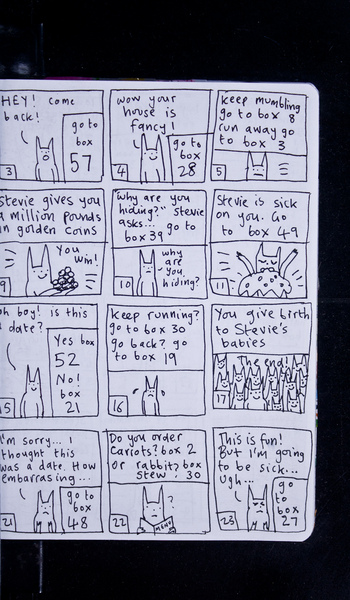 HEY! come
back!
go to
box
57
3
wow your
house is
fancy!
go to
box
28
4
keep mumbling
go to box 8
run away go
to box 3
5
Stevie gives you
a million pounds
in golden coins
You
win!
9
"Why are you
hiding?" Stevie
asks... go to
box 39
why
are
you
hiding?
10
Stevie is sick
on you. Go
to box 49
11
oh boy! is this
a date?
Yes box
52
No!
box
21
15
keep running?
go to box 30
go back? go
to box 19
16
You give birth
to Stevie's
babies
The end!
17
I'm sorry... I
thought this
was a date. How
embarrasing...
go to
box
48
21
Do you order
carrots? box 2
or rabbit? box
stew. 30
?
MENU
22
This is fun!
But I'm going
to be sick...
ugh...
go
to
box
27
23